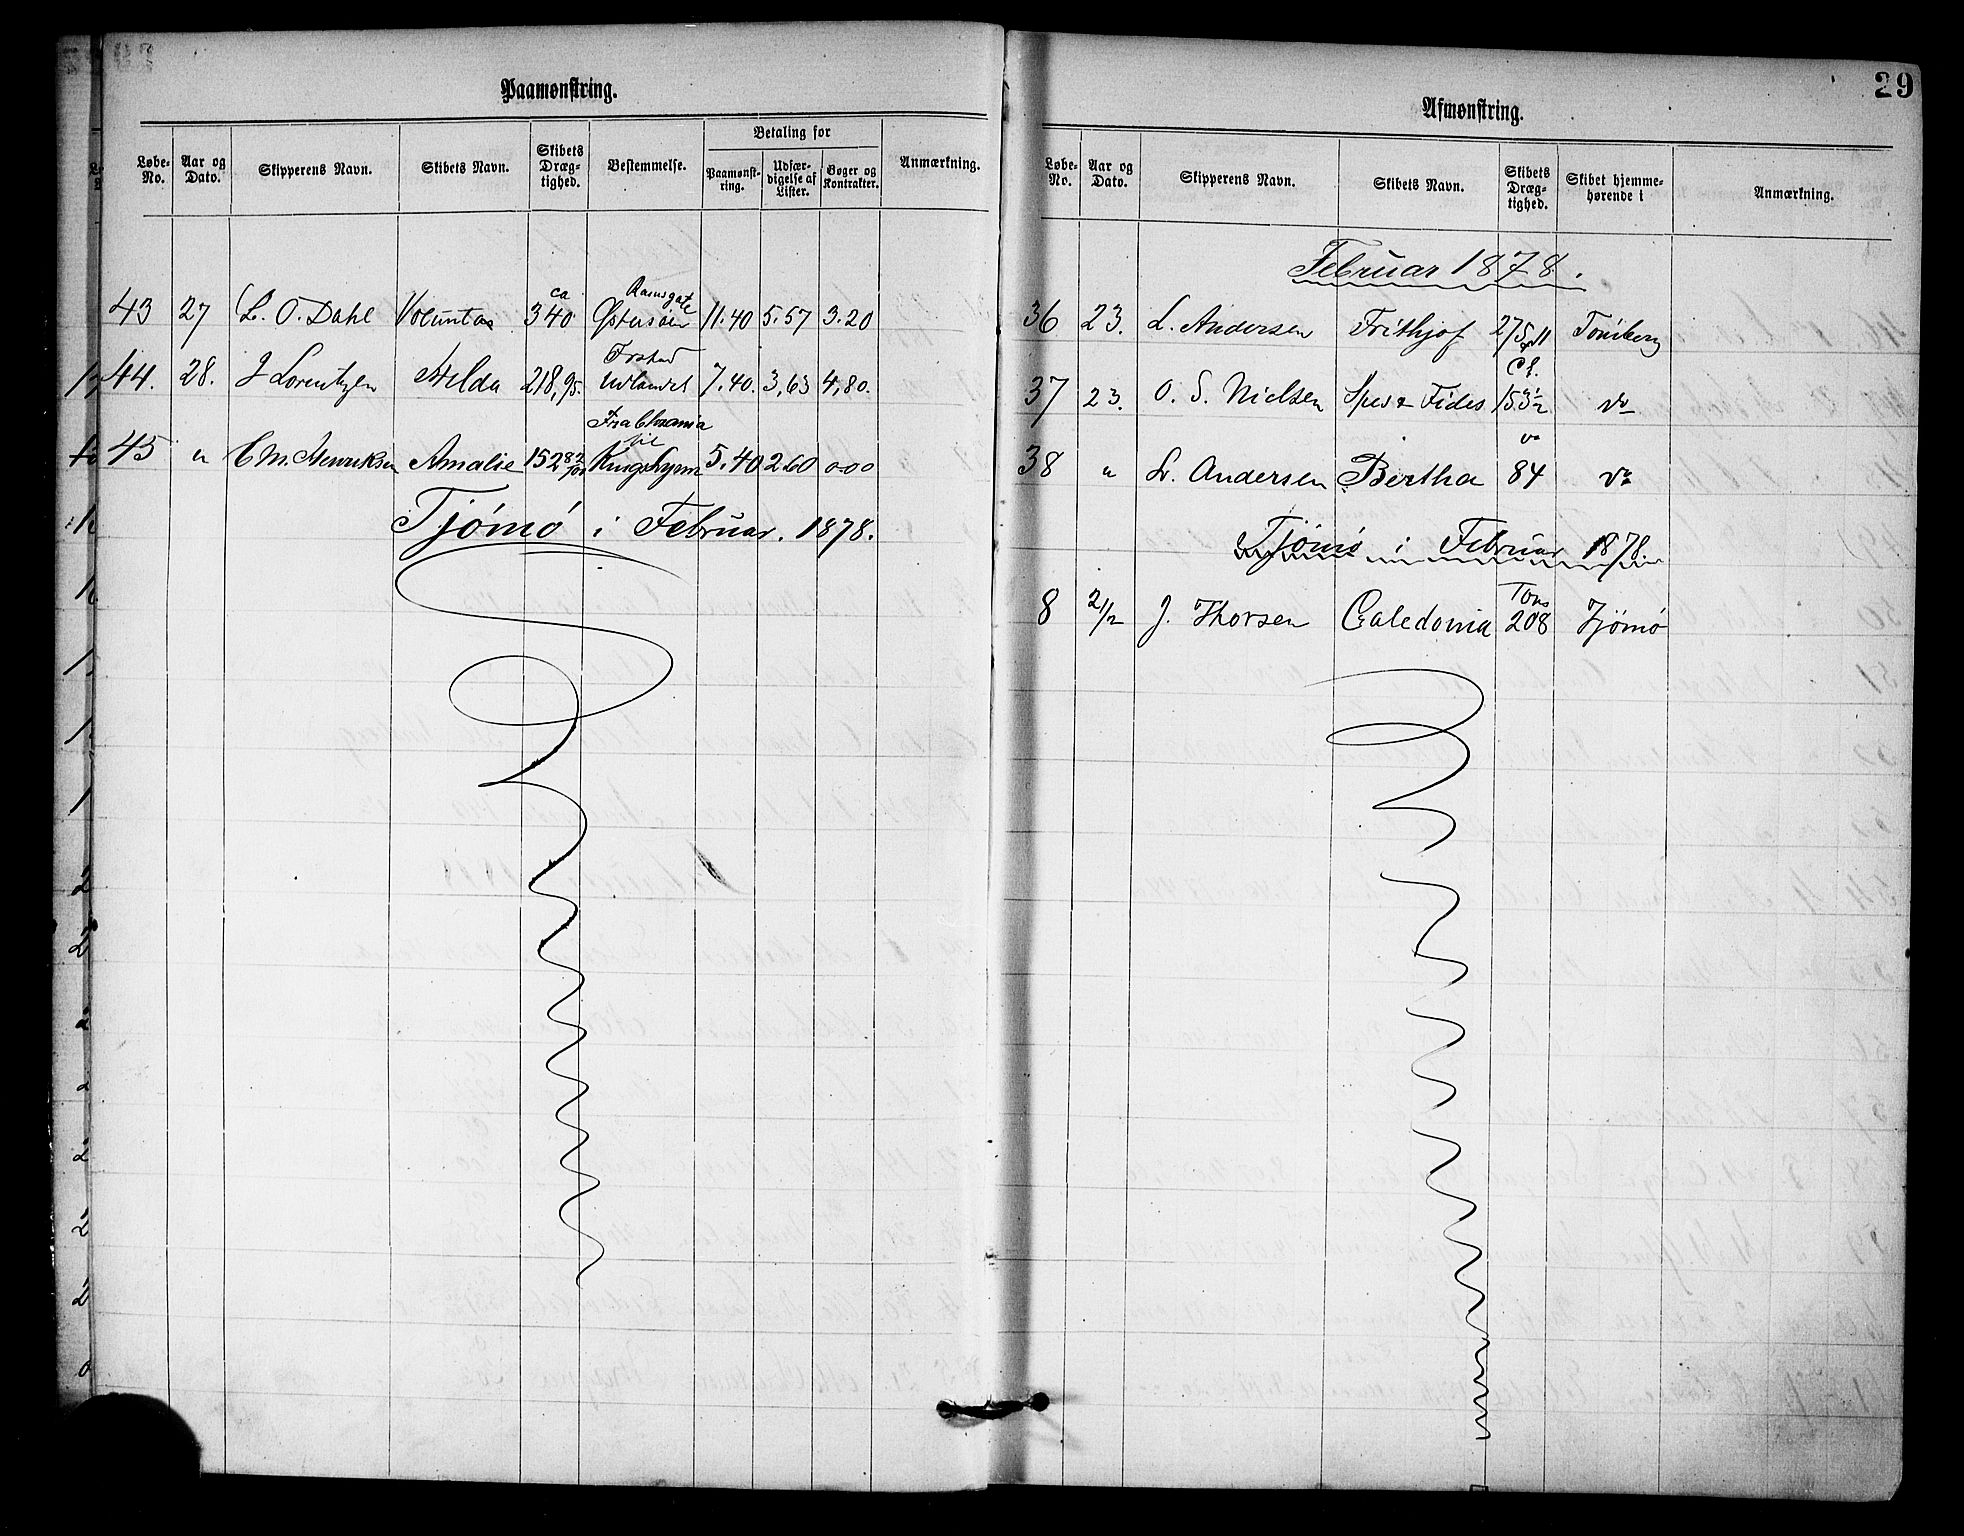 Paamønstring.
Løbe-No. Aar og Dato. Skipperens Navn. Skibets Navn. Skibets Dræg-tighed. Bestemmelse. Betaling for Paamønst-ring. Udfær-digelse af Lister. Bøger og Kontrakter. Anmærkning.
43 27 L. O. Dahl Voluntas ca 340 Ramsgate Østersøen 11.40 5.57 3.20
44. 28. J Lorentzen Hilda 218,95. Udlandet 7.40. 3,63 4,80.
45 " C M. Henriksen Amalie 152 82/100 Fra Chrania til 5.40 2.60 000
Tjømø i Februar. 1878.
29
Afmønstring.
Løbe-No. Aar og Dato. Skipperens Navn. Skibets Navn. Skibets Dræg-tighed. Skibet hjemme-hørende i Anmærkning.
Februar 1878.
36 23. L. Andersen Frithjof 275 Tønsberg
37 23. O. S. Nielsen Spes & Fides Cl. 153½ do
38 " L. Andersen Bertha do 84 do
Tjømø i Februar 1878.
8 2/2 J. Thorsen Caledonia Tons 208 Tjømø